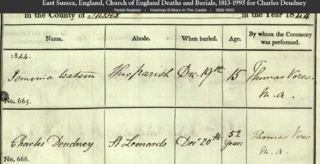 East Sussex, England, Church of England Deaths and Burials, 1813-1995 for Charles Deudney
Parish Register
Hastings St Mary-In-The-Castle
1828-1902
in the County of Sussex in the Year 1844
Name. Abode. When buried. Age. By whom the Ceremony was performed.
1844.
Jemima Watson This parish Dec. 19th 15 Thomas Vores M.A.
No. 665.
Charles Deudney St Leonards Decr 20th 52 Years Thomas Vores M.A.
No. 666.